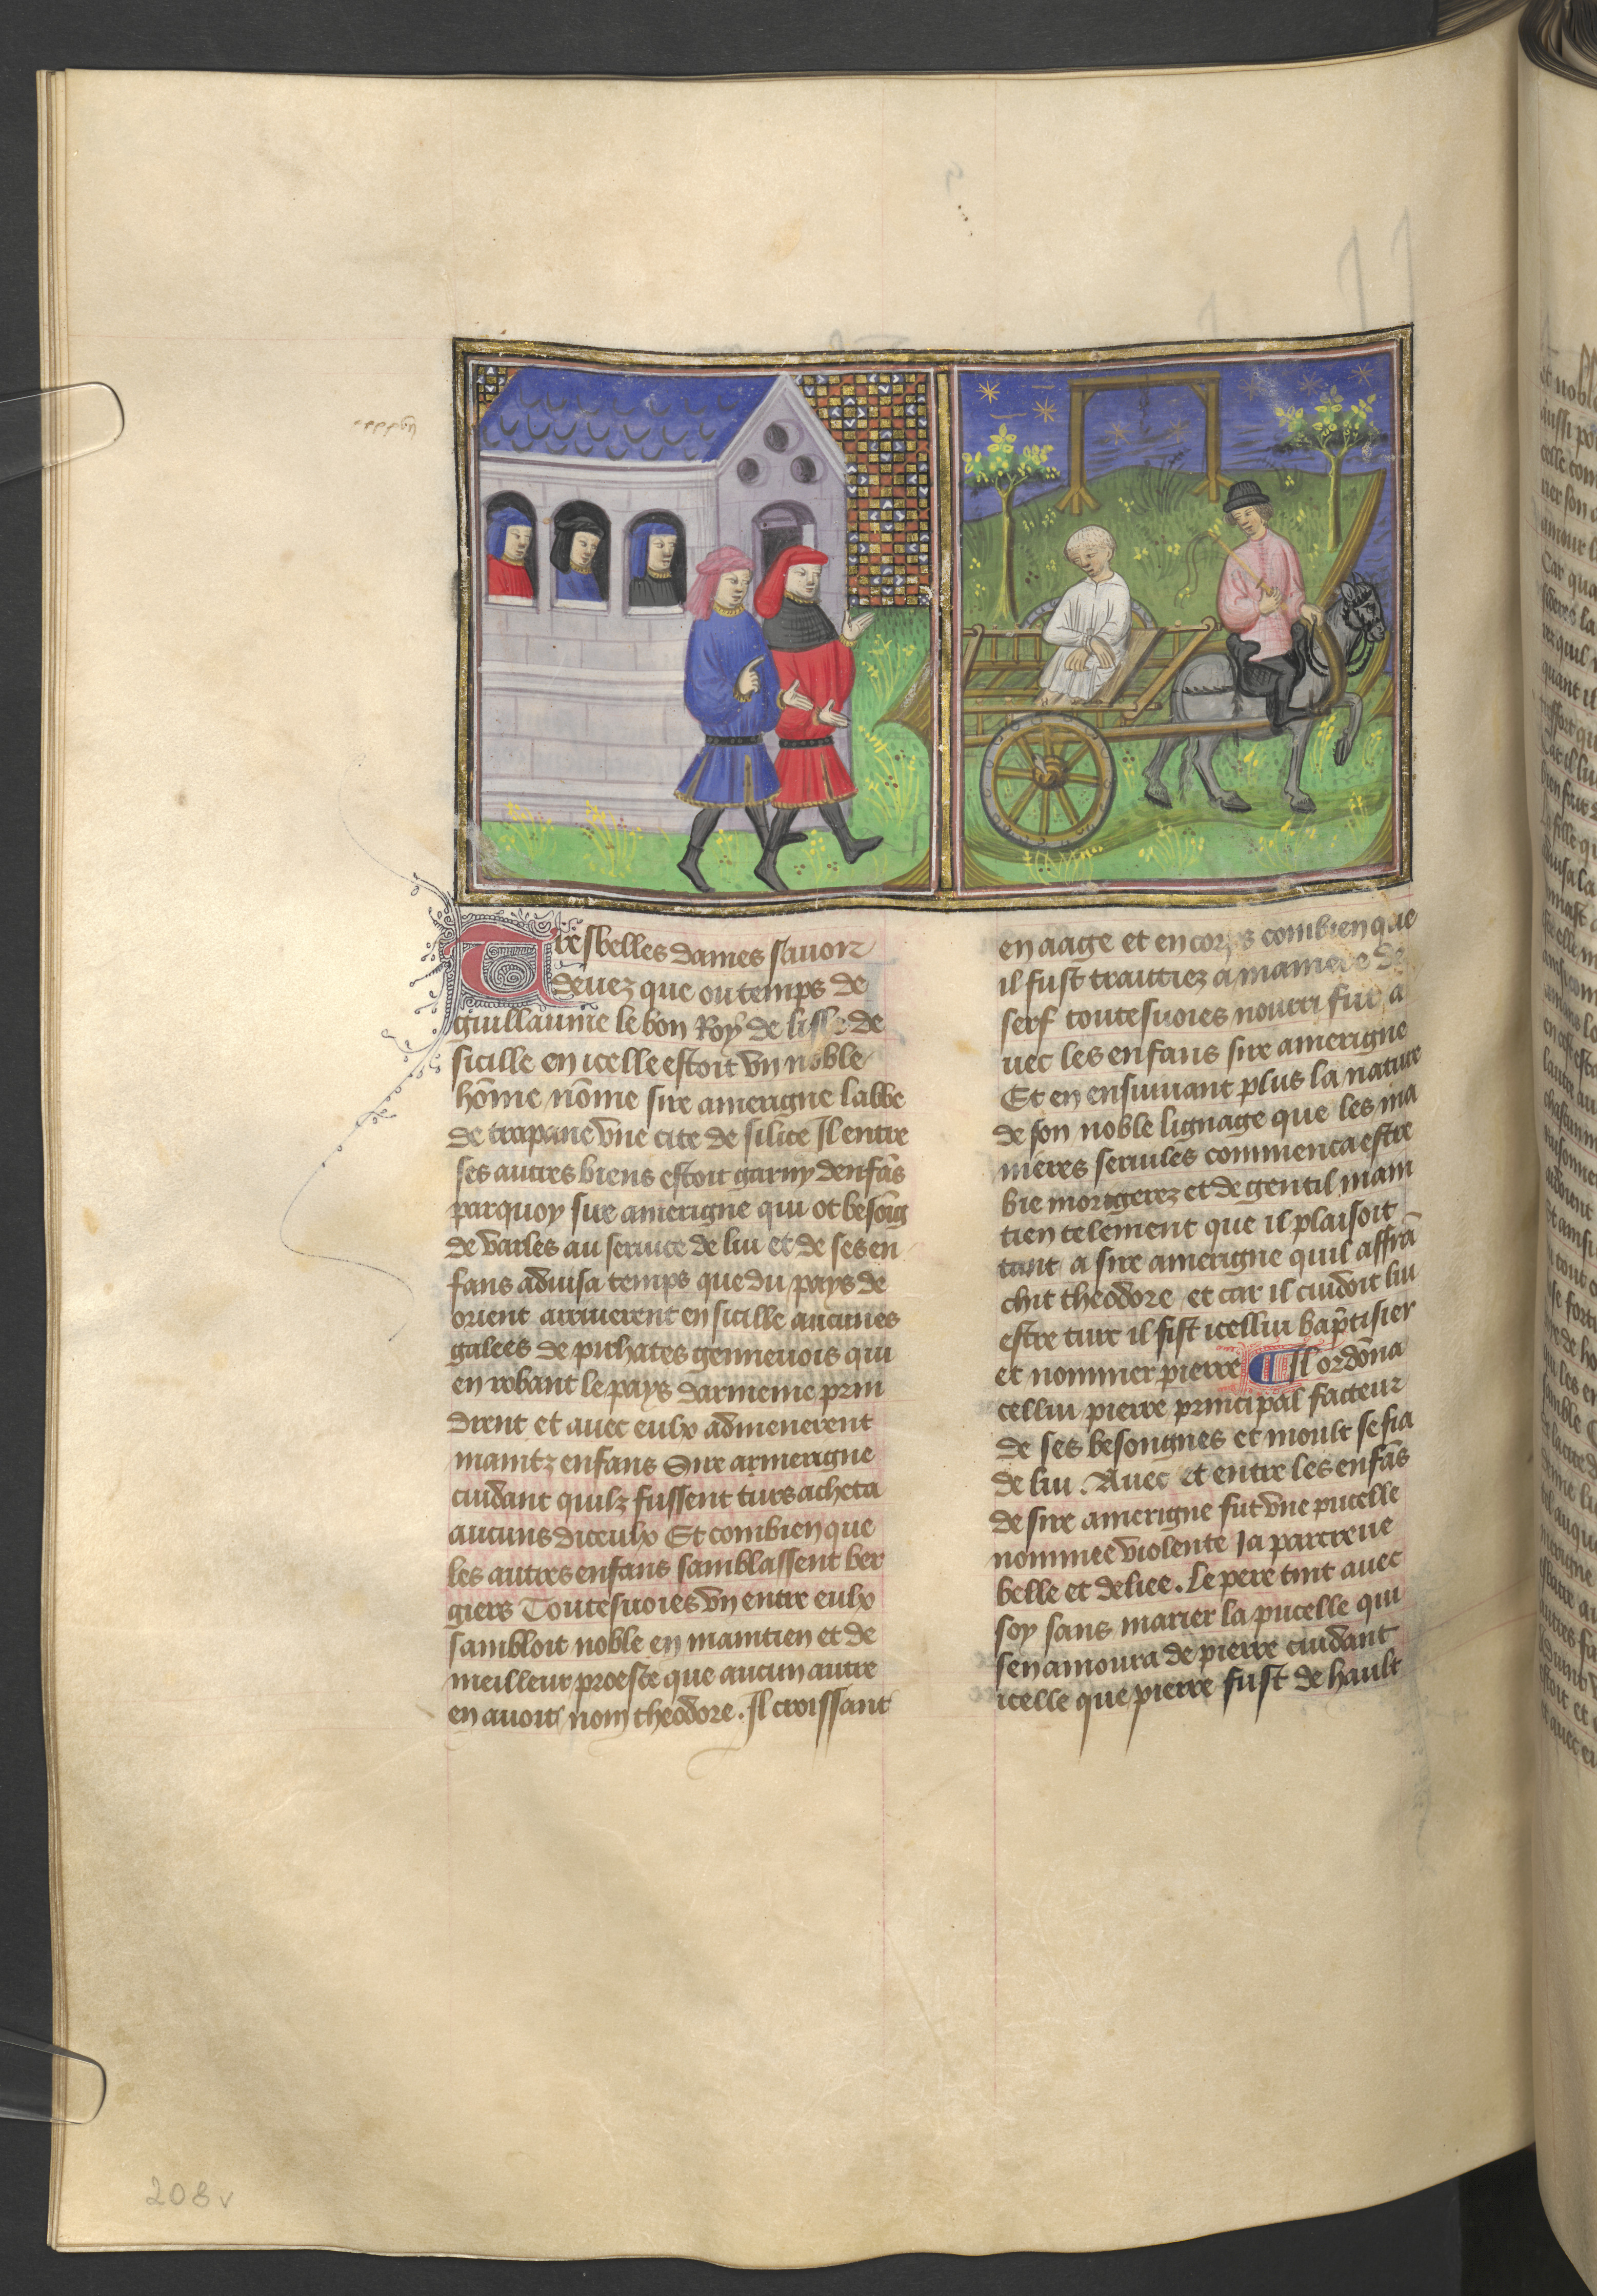 Tresbelles dames sauoir
deuez que ou temps de
guillaume le bon Roy de lisle de
sicille en icelle estoit vn noble
hōme nōme sire amerigne labbe
de trapane vne cite de silice Il entre
ses autres biens estoit garny denfās
parquoy sire amerigne qui ot besoīg
de varles au seruice de lui et de ses en
fans aduisa temps que du pays de
orient arriuerent en sicille aucunes
galees de pirhates genneuois qui
en robant le pays darmenie prin
drent et auec eulx admenerent
maintz enfans Sire armerigne
cuidant quilz fussent turs acheta
aucuns diceulx Et combien que
les autres enfans samblassent ber
giers Toutesuoies vn entre eulx
sambloit noble en maintien et de
meilleur proeste que aucun autre
en auoit nom theodore. Il croissant
en aage et en corps combien que
il fust trautiez a maniere de
serf toutesuoies nourri fut a
uec les enfans sire amerigne
Et en ensuiuant plus la nature
de son noble lignage que les ma
nieres seruiles commenca estre
biē morigerez et de gentil main
tien telement que il plaisoit
tant a sire amerigne quil affrā
chit theodore et car il cuidoit lui
estre turc il fist icellui bap̄tisier
et nommer pierre Il ordōna
cellui pierre principal facteur
de ses besongnes et moult se fia
de lui. Auec et entre les enfās
de sire amerigne fut vne pucelle
nommee violente Ja parcreue
belle et deliee. Le pere tint auec
soy sans marier la pucelle qui
senamoura de pierre cuidant
icelle que pierre fust de hault
208v